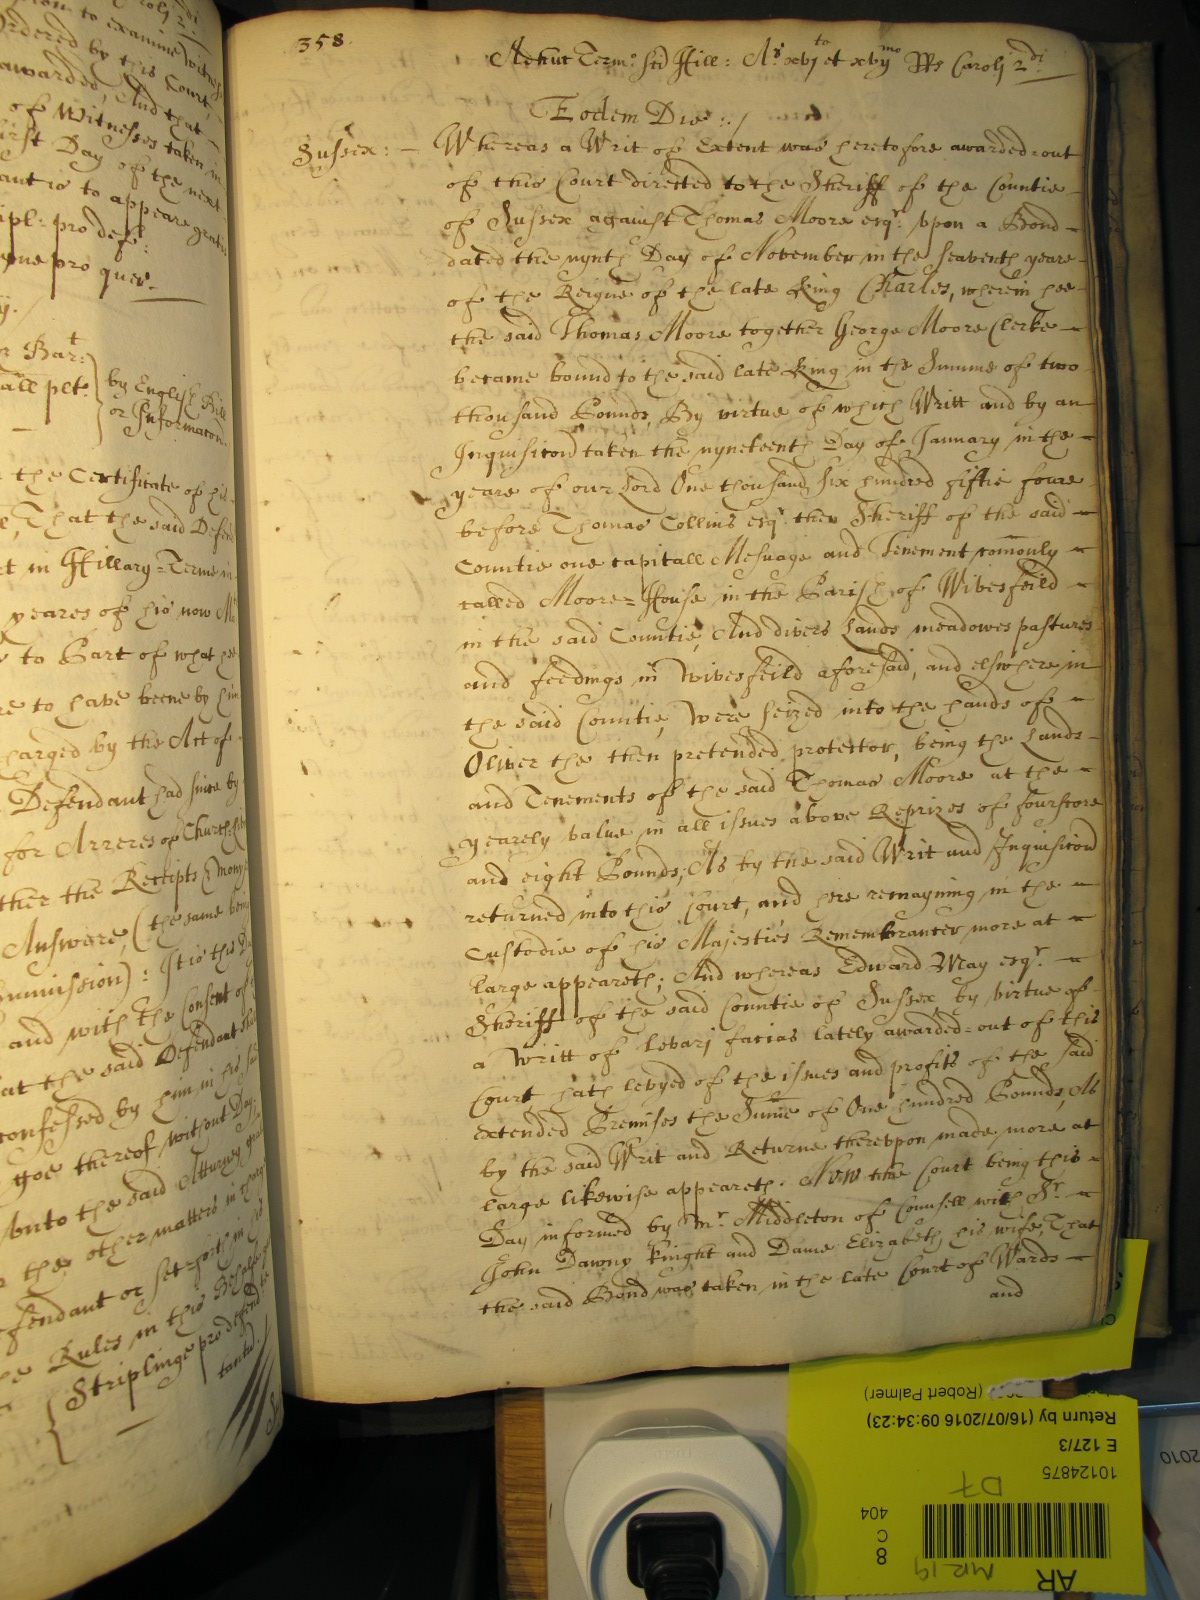 rolj 2di
ion to examine Witnes
Ordered by this Court,
awarded, And that
of Witnesses taken in
first Day of the next
ant is to appeare gratis
ipl: pro def:
yne pro quer.
y.
r Bart:
all plt.
by English Bill
or Informacon.
t the Certificate of his
e, That the said Defend
et in Hillary=Terme in
yeares of his now Ma
to Part of what hee
re to have beene by him
harged by the Act of
Defendant had since by
for Arreres of Church
ther the Receipts
Answare, (the same being
ommission): It is this Da
and with the Consent of
at the said Defendant
confessed by him in his said
goe thereof without Day,
unto the said Atturney
the other matters in
fendant or sett=forth in
e Rules in this Behalfe
Striplinge pro defend
tantum
358.
Adhuc Termo Sci Hill: Ao xvjto et xvijmo Rs Carolj 2di.
Eodem Die:/
Sussex: — Whereas a Writ of Extent was heretofore awarded=out
of this Court directed to the Sheriff of the Countie
of Sussex against Thomas Moore esqr. upon a Bond
dated the nynth Day of November in the seaventh yeare
of the Reigne of the late King Charles, wherein hee
the said Thomas Moore together George Moore Clerke
became bound to the said late King in the Summe of two
thousand Pounds, By virtue of which Writt and by an
Inquisicon taken the nyneteenth Day of January in the
yeare of our Lord One thousand six hundred fiftie foure
before Thomas Collins esqr. then Sheriff of the said
Countie one capitall Mesuage and Tenement comonly
called Moore=House in the Parish of Wivesfeild
in the said Countie, And divers Lands meadowes pastures
and feedings in Wivesfeild aforesaid, and elswhere in
the said Countie, Were seized into the hands of
Oliver the then pretended protector, being the Lands
and Tenements of the said Thomas Moore at the
yearely value in all issues above Reprizes of fourscore
and eight Pounds; As by the said Writ and Inquisicon
returned into this Court, and here remayning in the
Custodie of his Majesties Remembrancer more at
large appeareth; And whereas Edward May esqr.
Sheriff of the said Countie of Sussex by virtue of
a Writt of Levarj facias lately awarded=out of this
Court hath levyed of the issues and profits of the said
extended Premises the Sume of One hundred Pounds, As
by the said Writ and Returne thereupon made more at
large likewise appeareth. Now the Court being this
Day informed by Mr. Middleton of Counsell with Sr.
John Dawny Knight and Dame Elizabeth his wife, That
the said Bond was taken in the late Court of Wards
and
(Robert Palmer)
Return by (16/07/2016 09:34:23)
E 127/3
10124875
D7
404
C
8
MR 19
AR
2010